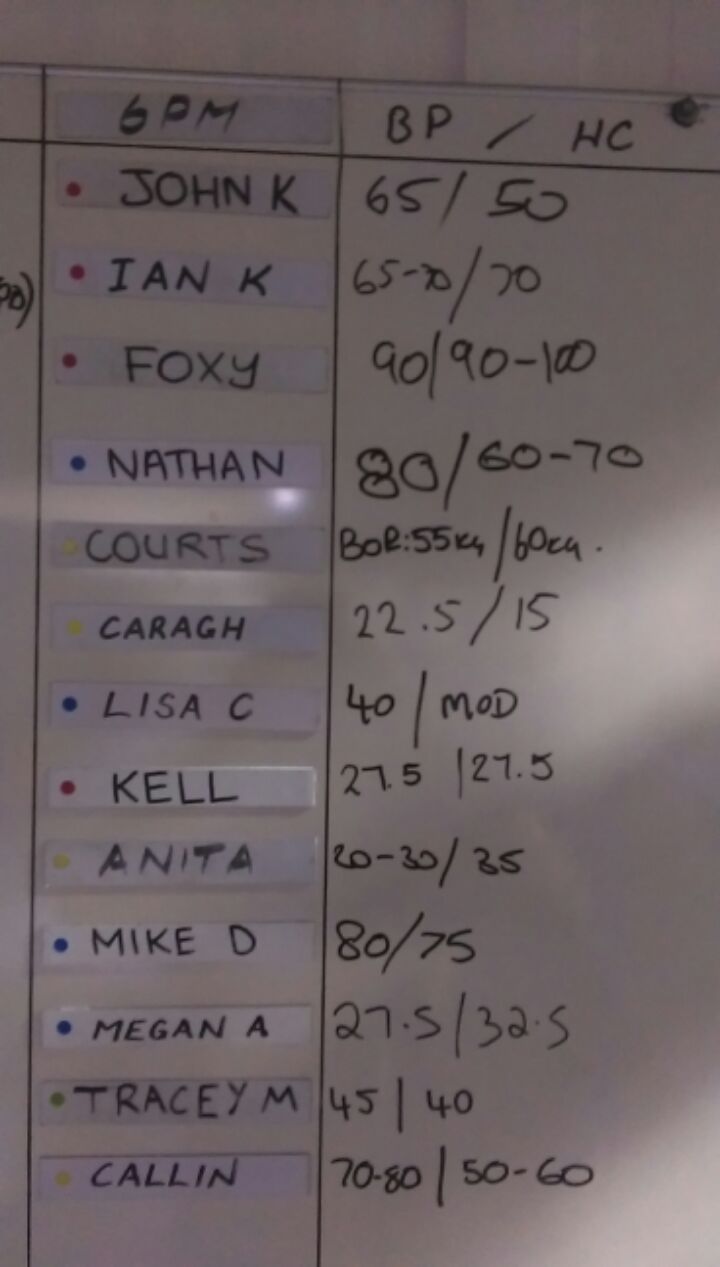 6PM BP / HC
JOHN K 65/50
IAN K 65-70/70
FOXY 90/90-100
NATHAN 80/60-70
COURTS BOR:55KG/60KG.
CARAGH 22.5/15
LISA C 40/MOD
KELL 27.5/27.5
ANITA 20-30/35
MIKE D 80/75
MEGAN A 27.5/32.5
TRACEY M 45/40
CALLIN 70-80/50-60